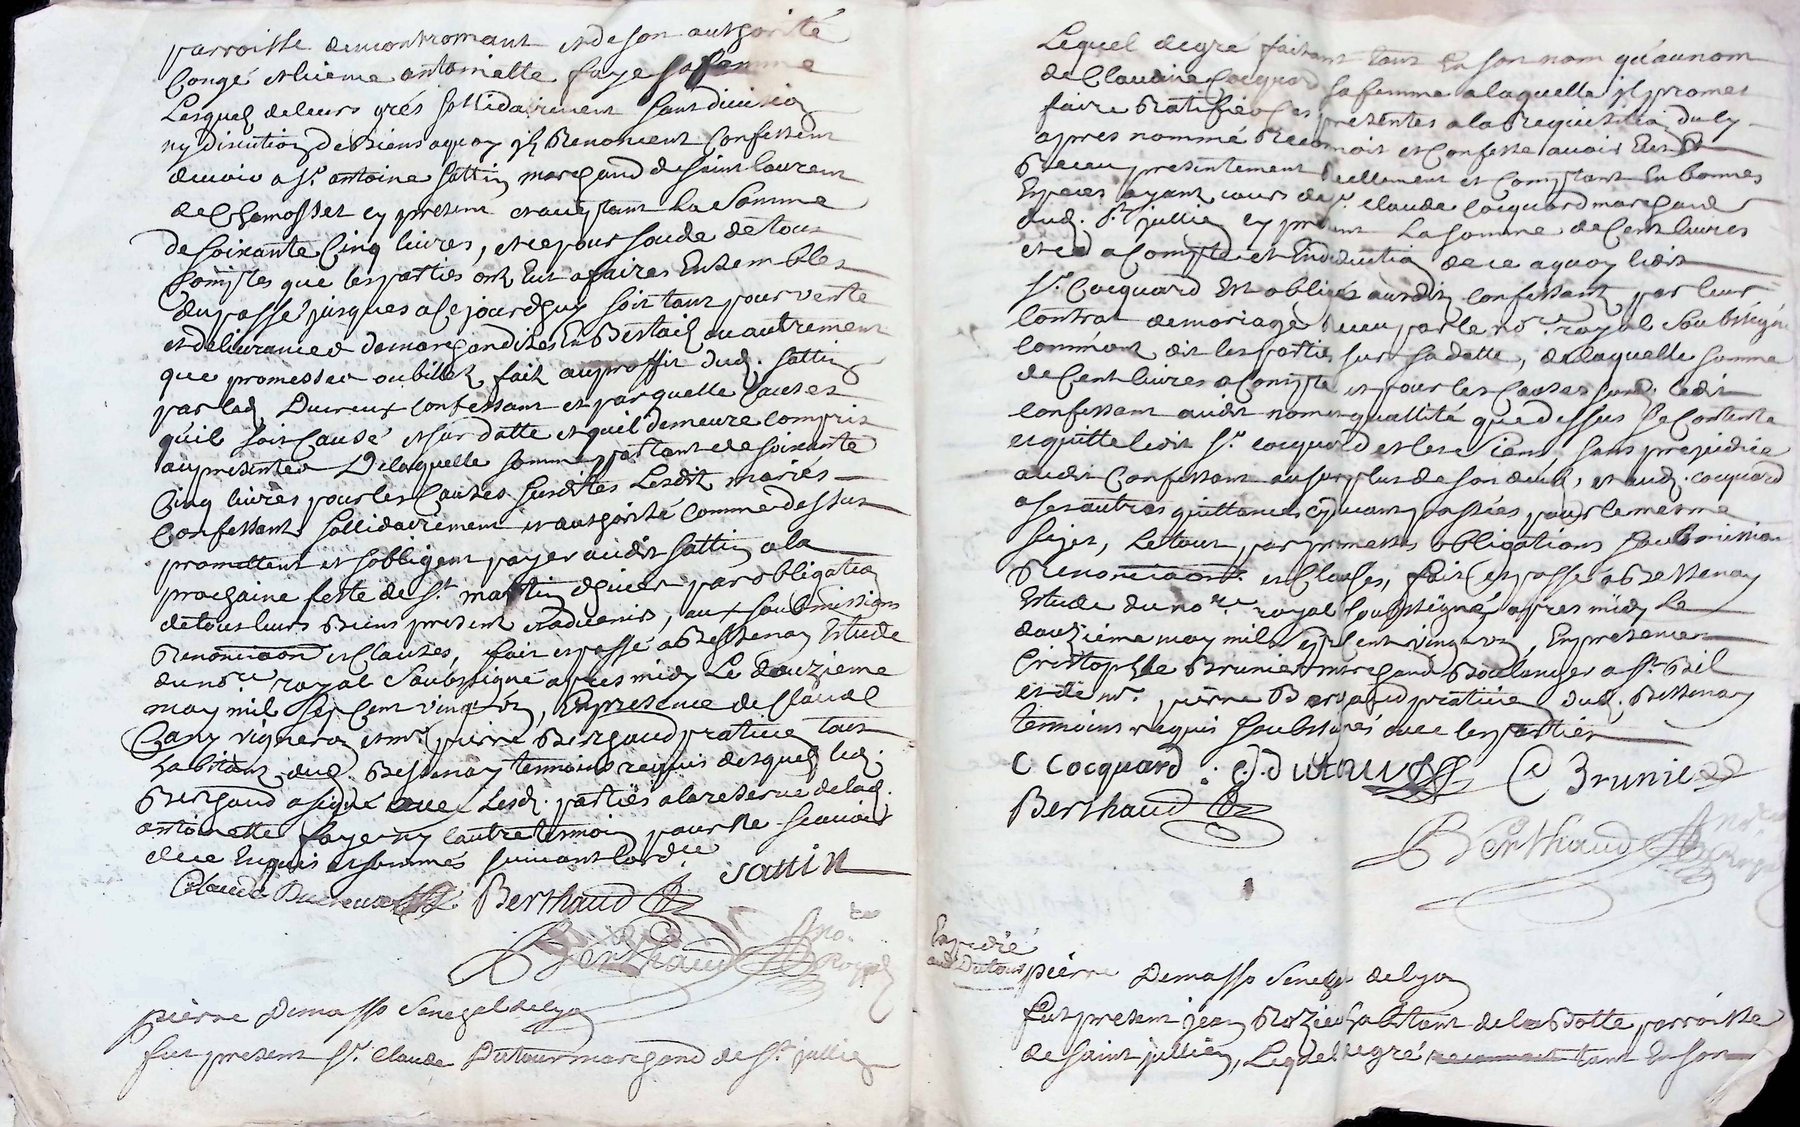 parroisse de montromant et de son authorité
Congé et licence antoinette faye sa femme
Lesquels de leurs grés sollidairement sans division
ny discution de biens a quoy ils Renoncent Confessent
devoir a sr. antoine sattin marchand de saint laurent
de Chamosset cy present et acceptant La Somme
de soixante Cinq livres, et ce pour soude de tous
Comptes que les parties ont Eut a faires Ensembles
du passé jusques a ce jourdhuy soit tant pour vente
et delivrances de marchandises En Bestail ou autrement
que promesses ou billets fait au proffit dud. sattin
par led. Ducreux confessant et par quelle Causes
qu'il soit Causé et sur datte et quil demeure compris
au presentes De laquelle somme partant de soixante
Cinq livres pour les Causes susdittes Lesdits mariés
Confessants sollidairement et authorité comme dessus
promettent et sobligent payer audit sattin a la
prochaine feste de st. martin dhiver par obligation
de tous leurs Biens present et advenirs, aux soubmissions
Renonciaons et Clauses, fait et passé a Bessenay Estude
du nore. royal Soubsigné apres midy Le douzieme
may mil sept Cent vingt six, En presence de Claude
Cany vigneron et mr. pierre Berthaud praticien tous
habitans dud. Bessenay temoins requis desquels led.
Berthaud a signé avec Lesd. parties a la reserve de lad.
antoinette faye ny lautre temoin pour ne scavoir
de ce Enquis et sommés suivant lordce
Claude Ducreux Berthaud sattin
Berthaud no.re Royal
pierre Demasso Senechal de Lyon
fut present sr. Claude Dutour marchand de st. jullien
Lequel de gré faisant tant En son nom qu'au nom
de Claudine Cocquard sa femme a laquelle il promet
faire Ratifier Ces presentes a la Requisition du cy
apres nommé Reconnoit et Confesse avoir Eut et
Receu presentement Reellement et Comptant En bonnes
Especes ayant cours de sr. Claude Cocquard marchand
dud. st. jullien cy present La somme de Cent livres
et ce a Compte et En deduction de ce a quoy ledit
sr. Cocquard Est obligé ausdits Confessants par leur
Contrat de mariage Receu par le nore. royal Soubsigné
Comme ont dit les parties sur sa datte, de laquelle somme
de Cent livres a Compte et pour les Causes susd. ledit
confessant audit nom et quallité que dessus se Contente
et quitte ledit sr. cocquard et les siens, sans prejudice
audit Confessant du surplus de son deub, et aud. cocquard
a ses autres quittances cy devant passées pour le mesme
sujet, Le tout par promesses obligations soubmissions
Renonciaons. et Clauses, fait et passé a Bessenay
Estude du nore. royal soubsigné apres midy Le
douzieme may mil sept Cent vingt six, En presence
Cristophle Brunier marchand Boulanger a st. Bel
et de mr. pierre Berthaud praticien dud. Bessenay
temoins requis soubsignés avec les parties
C Cocquard : C. Dutour C Brunier
Berthaud
Berthaud no.re Royal
Expedié
aud. Dutour
pierre Demasso Senechal de Lyon
fut present jean Rozier habitant de la Motte parroisse
de saint jullien, Lequel de gré reconnoit tant En son